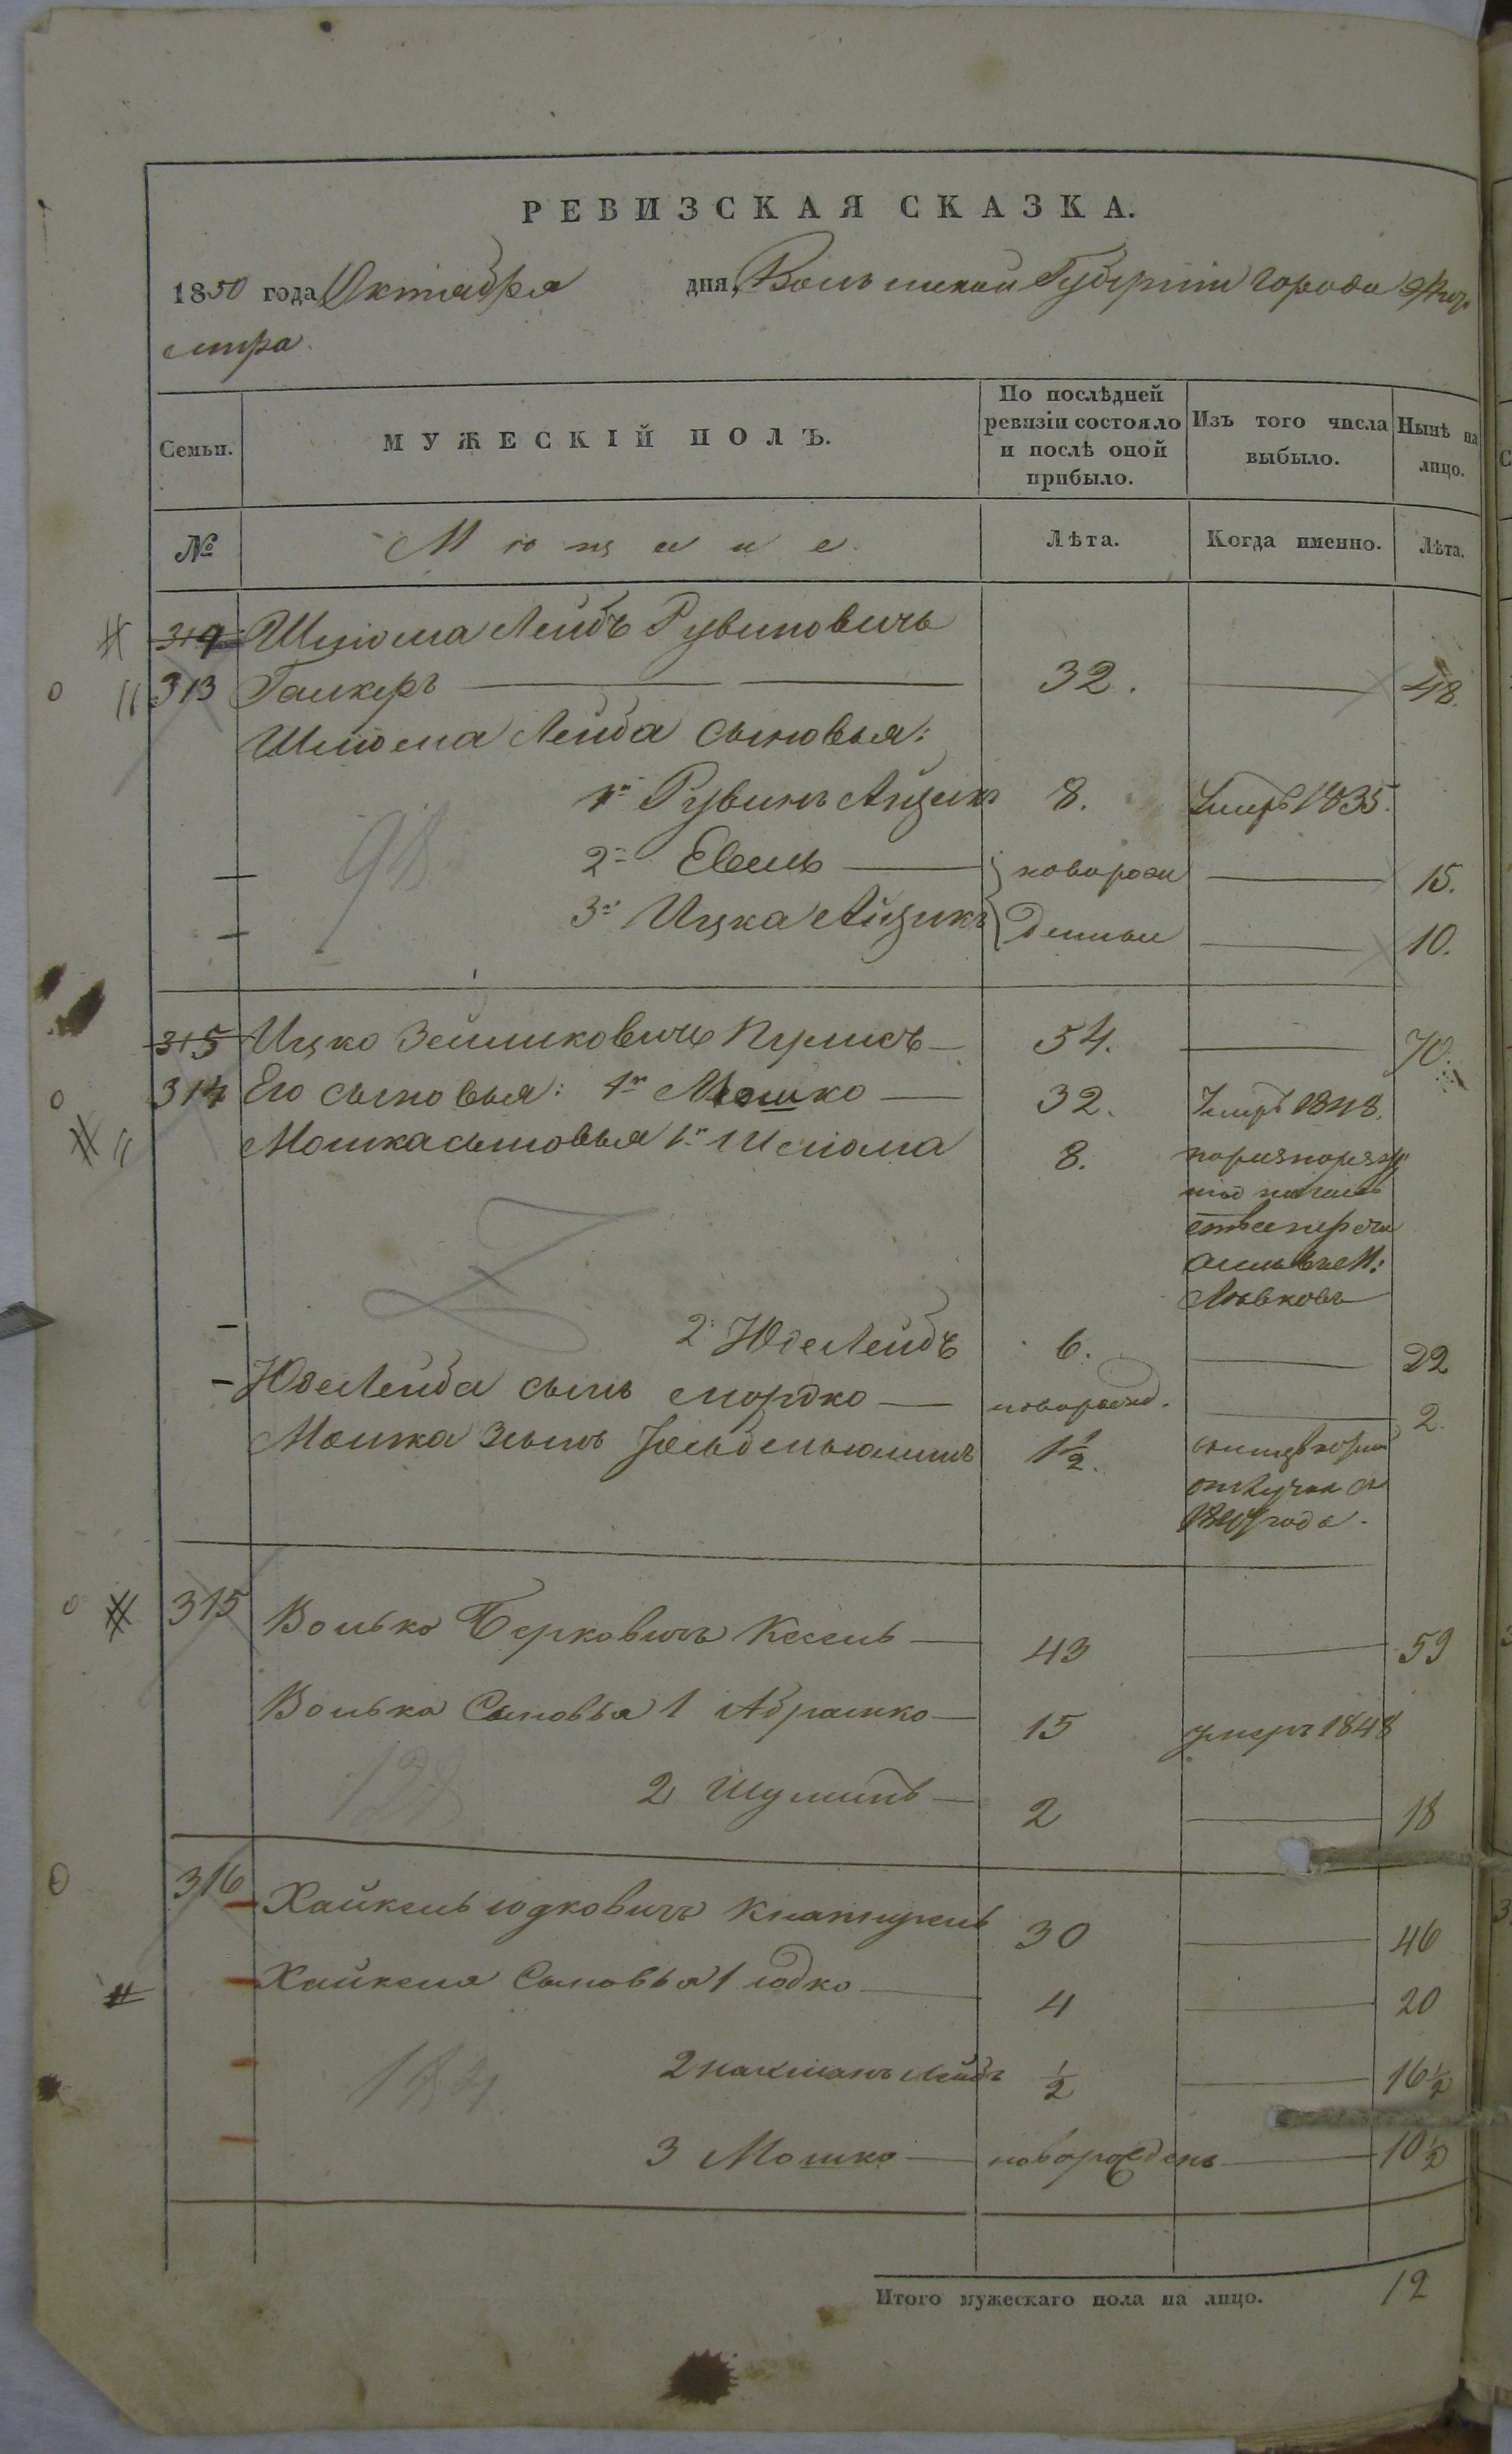 РЕВИЗСКАЯ СКАЗКА.
1850 года Октября дня, Волынской Губернiи города Жито
мира.
Семьи. МУЖЕСКIЙ ПОЛЪ. По послѣдней ревизiи состояло и послѣ оной прибыло. Изъ того числа выбыло. Нынѣ на лицо.
№ Мѣщане. Лѣта. Когда именно. Лѣта.
314 Шлiома Лейбъ Рувиновичъ
313 Галкеръ 32. 48.
Шлiома Лейба сыновья:
1й Рувинъ Айзикъ 8. Умеръ 1835.
98
2й Евель новорож 15.
3й Ицка Айзикъ денные 10.
315 Ицко Зельмковичъ 54. 70.
314 Его сыновья: 1й Мошко 32. Умеръ 1848.
Мошка сыновья 1й Шлiома 8.
2й Юделейбъ 6. 22
Юделейба сынъ Мордко новорожд. 2.
Мошка 3 сынъ 1½.
отлучки съ
года.
315 Волько Берковичъ Кесель 43 59
Волька Сыновья 1 Абрамко 15 умеръ 1848
128
2 Шулимъ 2 18
316 Хайкель Юдковичъ 30 46
Хайкеля Сыновья 1 Юдко 4 20
2 Нахманъ Лейбъ ½ 16½
3 Мошко новорожденъ 10½
Итого мужескаго пола на лицо. 12